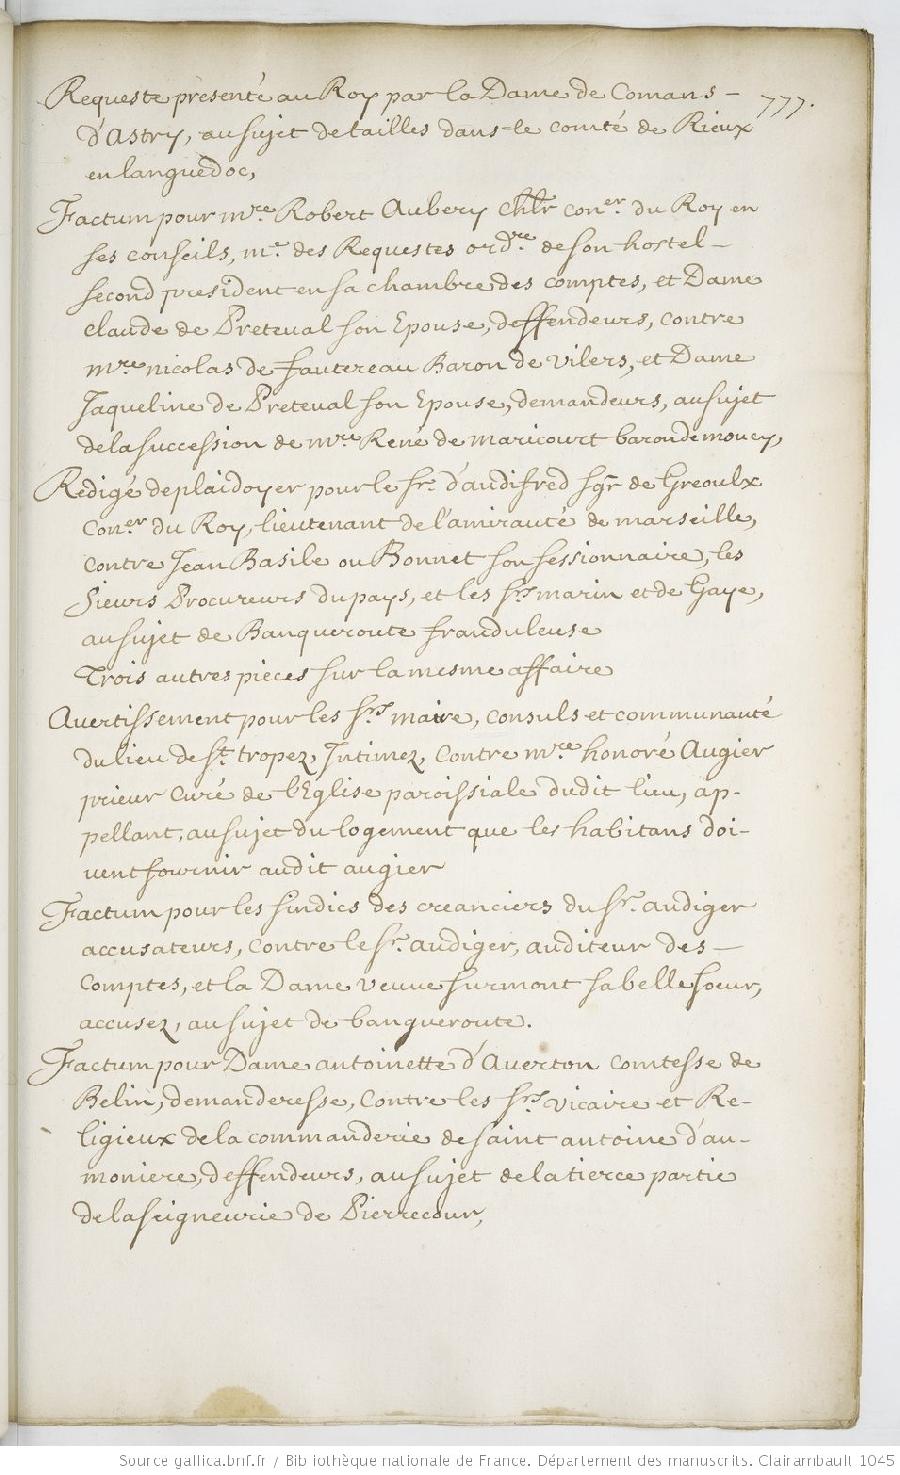 Requeste presenté au Roy par la Dame de Comans –
777.
d'Astry, au sujet de tailles dans le comté de Rieux
en languedoc,
Factum pour mre. Robert Aubery Chlr coner. du Roy en
ses conseils, me. des Requestes ordre. de son hostel –
second president en sa chambre des comptes, et Dame
claude de Preteval son Epouse, deffendeurs, contre
mre nicolas de fautereau Baron de vilers, et Dame
Jaqueline de Preteval son Epouse, demandeurs, au sujet
de la succession de mre. René de maricourt baron de moucy,
Redigé de plaidoyer pour le sr. d'audifred sgr de Greoulx
coner du Roy, lieutenant de l'amirauté de marseille,
contre Jean Basile ou Bonnet son sessionnaire, les
Sieurs Procureurs du pays, et les srs marin et de Gaye,
au sujet de Banqueroute frauduleuse
Trois autres pieces sur la mesme affaire
Avertissement pour les srs maire, consuls et communauté
du lieu de st. tropez, Intimez, Contre mre honoré Augier
prieur Curé de l'Eglise paroissiale dudit lieu, ap-
pellant, au sujet du logement que les habitans doi-
vent fournir audit augier
Factum pour les sindics des creanciers du sr. audiger
accusateurs, Contre le sr. audiger, auditeur des –
Comptes, et la Dame veuve surmont sa belle soeur,
accusez, au sujet de banqueroute.
Factum pour Dame antoinette d'Averton comtesse de
Belin, demanderesse, Contre les srs vicaire et Re-
ligieux de la commanderie de saint antoine d'au-
moniere, deffendeurs, au sujet de la tierce partie
de la seigneurie de Pierrecour,
Source gallica.bnf.fr / Bibliothèque nationale de France. Département des manuscrits. Clairambault 1045